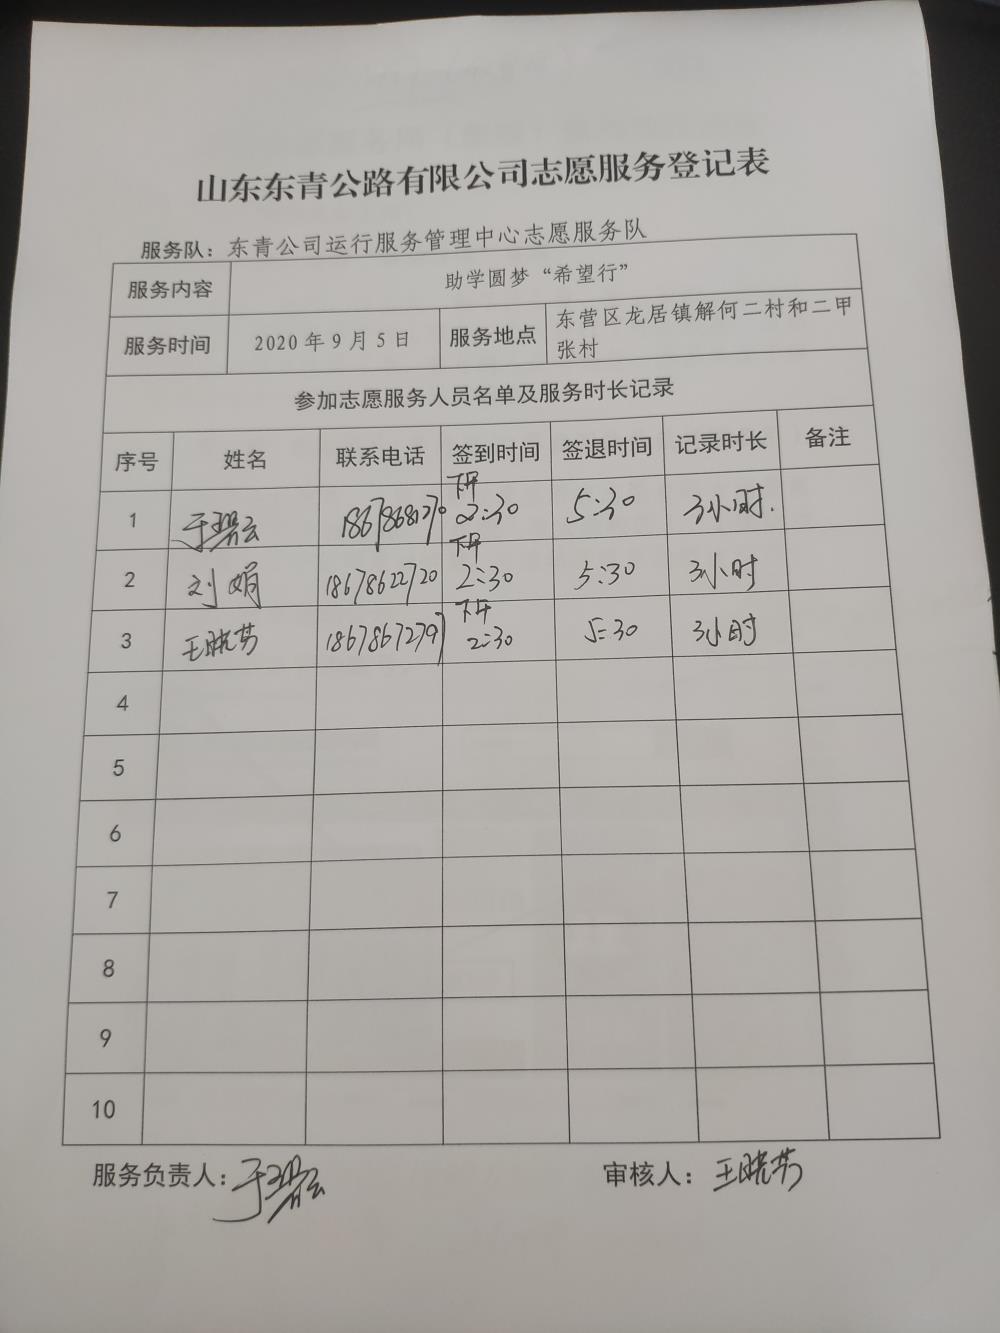 山东东青公路有限公司志愿服务登记表
服务队：东青公司运行服务管理中心志愿服务队
服务内容 助学圆梦“希望行”
服务时间 2020年9月5日 服务地点 东营区龙居镇解何二村和二甲
张村
参加志愿服务人员名单及服务时长记录
序号 姓名 联系电话 签到时间 签退时间 记录时长 备注
1 于碧云 18678681270 下午2:30 5:30 3小时.
2 刘娟 18678622720 下午2:30 5:30 3小时
3 王晓芳 18678672797 下午2:30 5:30 3小时
4
5
6
7
8
9
10
服务负责人：于碧云 审核人：王晓芳